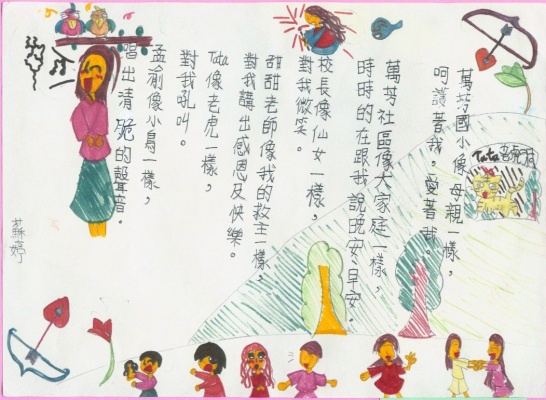 萬芳國小像母親一樣，
呵護著我。愛著我。
萬芳社區像大家庭一樣，
時時的在跟我說晚安、早安。
校長像仙女一樣，
對我微笑。
甜甜老師像我的救主一樣，
對我講出感恩及快樂。
Tata像老虎一樣，
對我吼叫。
孟俞像小鳥一樣，
唱出清脆的聲音。
蘇婷
Tata老虎